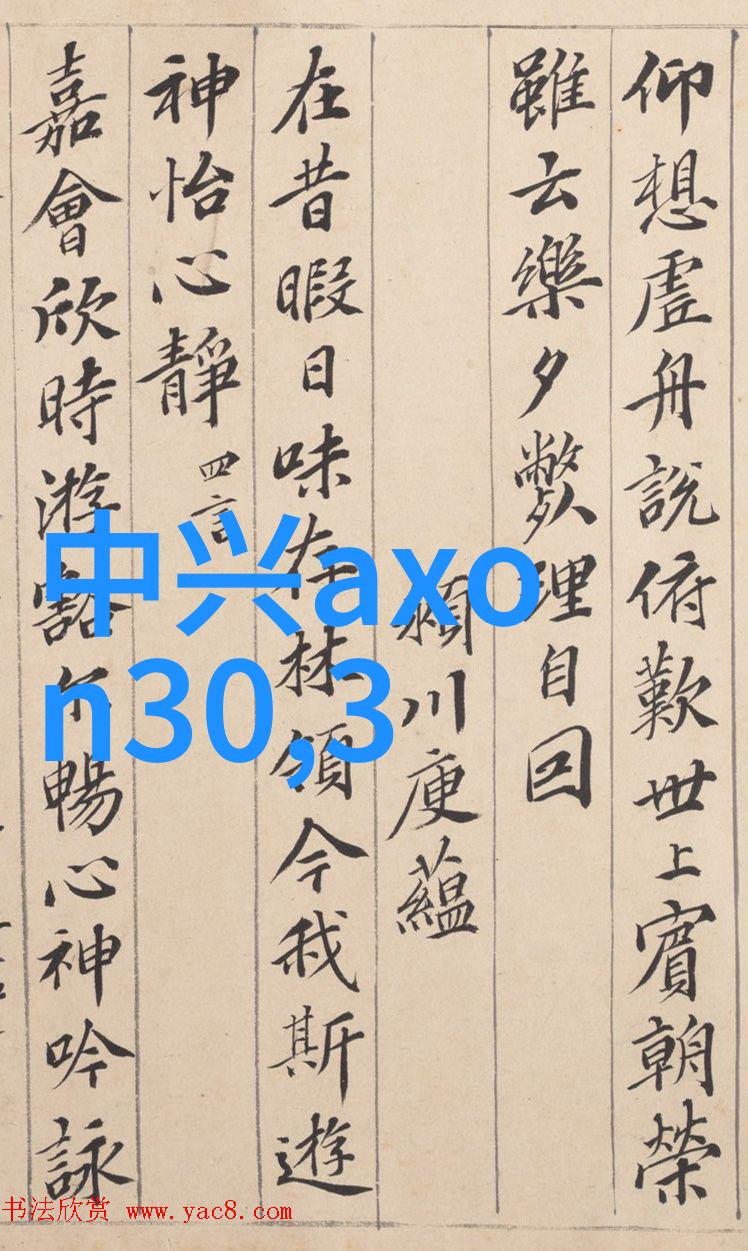 仰想虗舟說俯歎世上賓朝榮
雖云樂夕獘理自回
潁川庾蘊
在昔暇日味存林領今我斯遊
神怡心靜 四言
嘉會欣時游豁尓暢心神吟詠
中兴axo
n30,3
书法欣赏 www.yac8.com